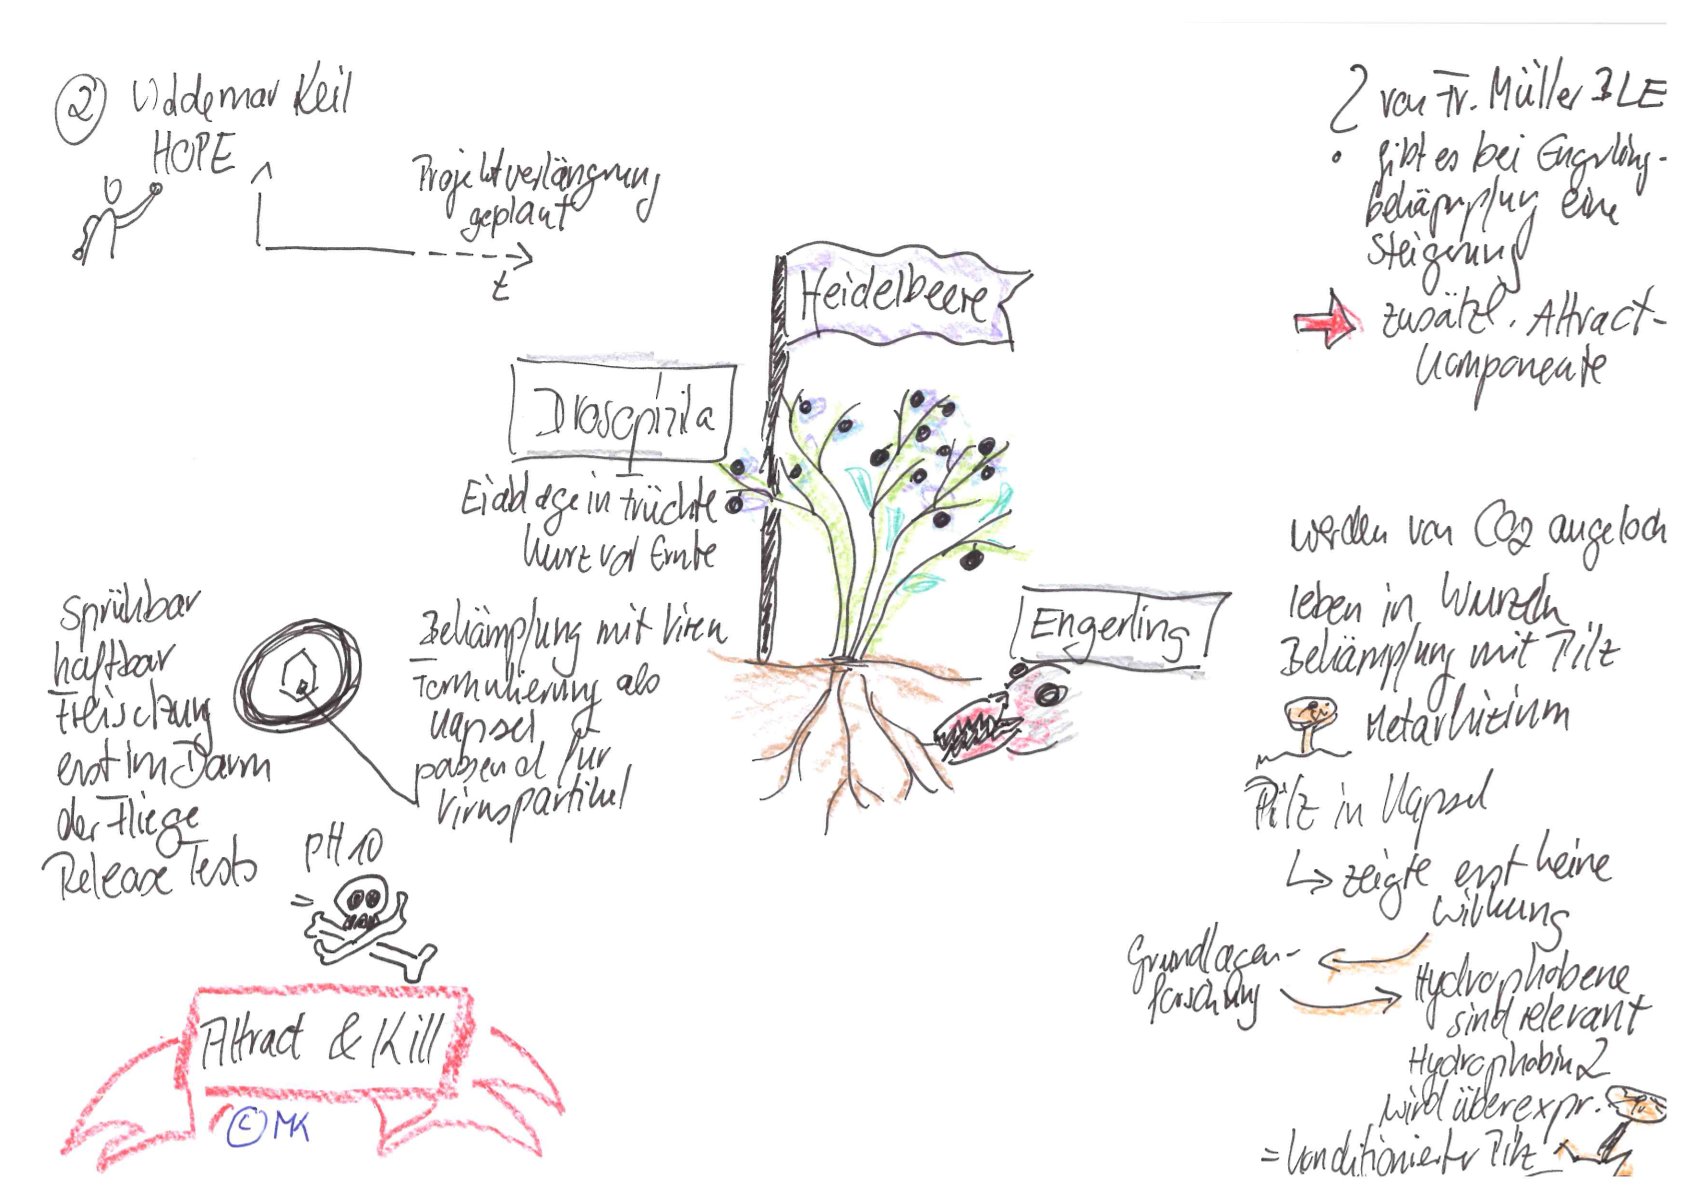 2 Woldemar Keil
HOPE
Projektverlängerung
geplant
t
Heidelbeere
Drosophila
Eiablage in Früchte
kurz vor Ernte
Bekämpfung mit Viren
Formulierung als
Kapsel
passend für
Viruspartikel
Sprühbar
haftbar
Freisetzung
erst im Darm
der Fliege
Release Tests
pH 10
Attract & Kill
© MK
? von Fr. Müller BLE
• gibt es bei Engerling-
bekämpfung eine
Steigerung
zusätzl. Attract-
Komponente
Engerling
werden von CO2 angeloch
leben in Wurzeln
Bekämpfung mit Pilz
Metarhizium
Pilz in Kapsel
↳ zeigte erst keine
Wirkung
Grundlagen-
forschung
Hydrophobene
sind relevant
Hydrophobin 2
wird überexpr.
= konditionierter Pilz